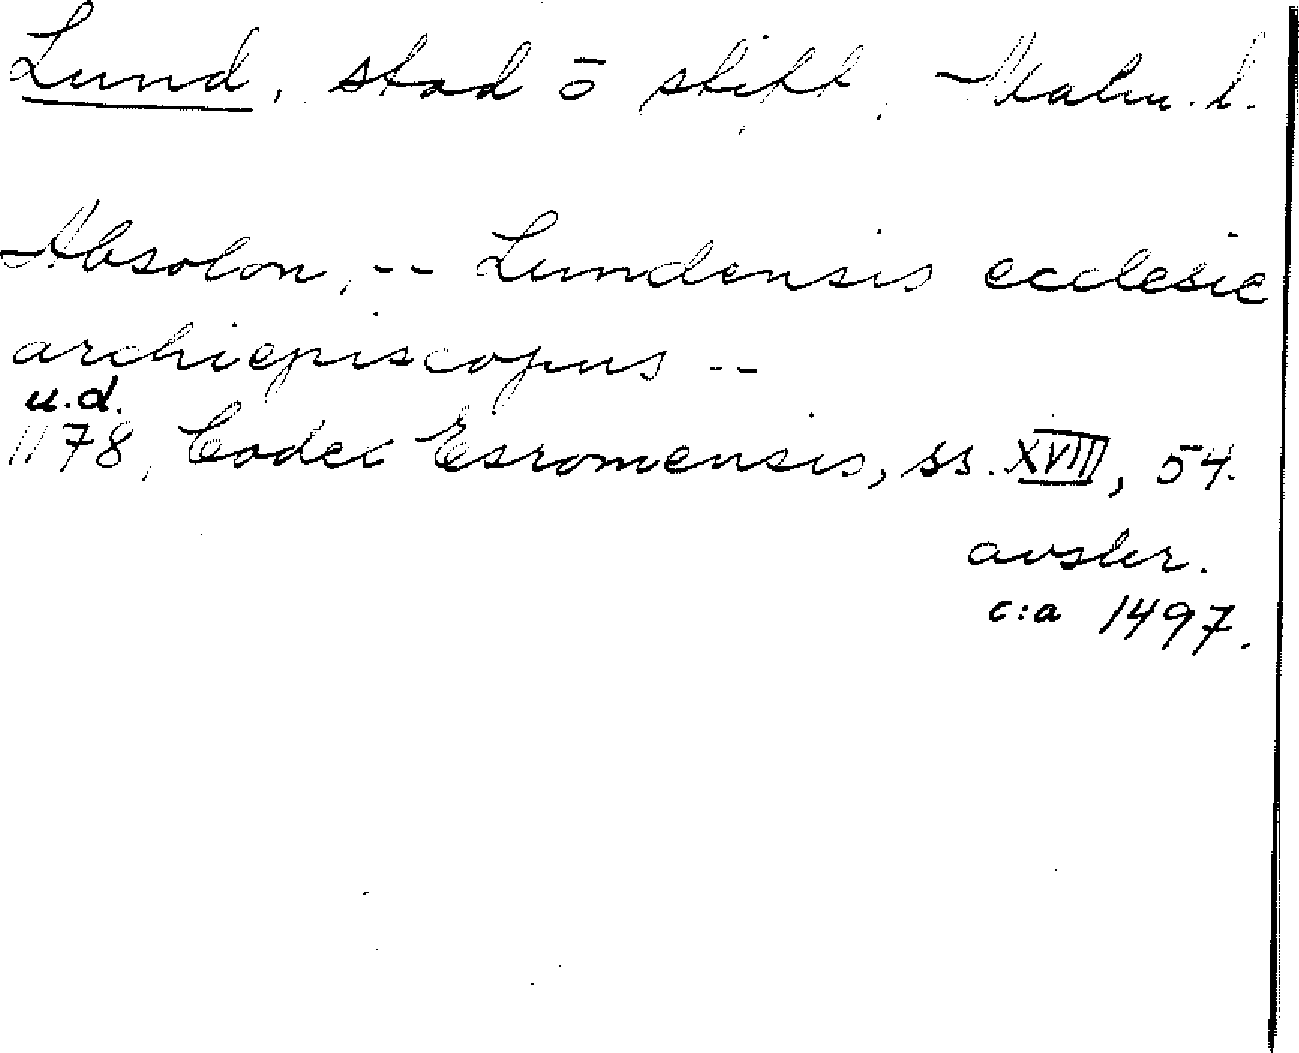 Lund, stad ō stift, Malm. l.
Absolon, -- Lundensis ecclesie
archiepiscopus --
u.d.
1178, Codex Esromensis, ss. XVIII, 54.
avskr.
c:a 1497.